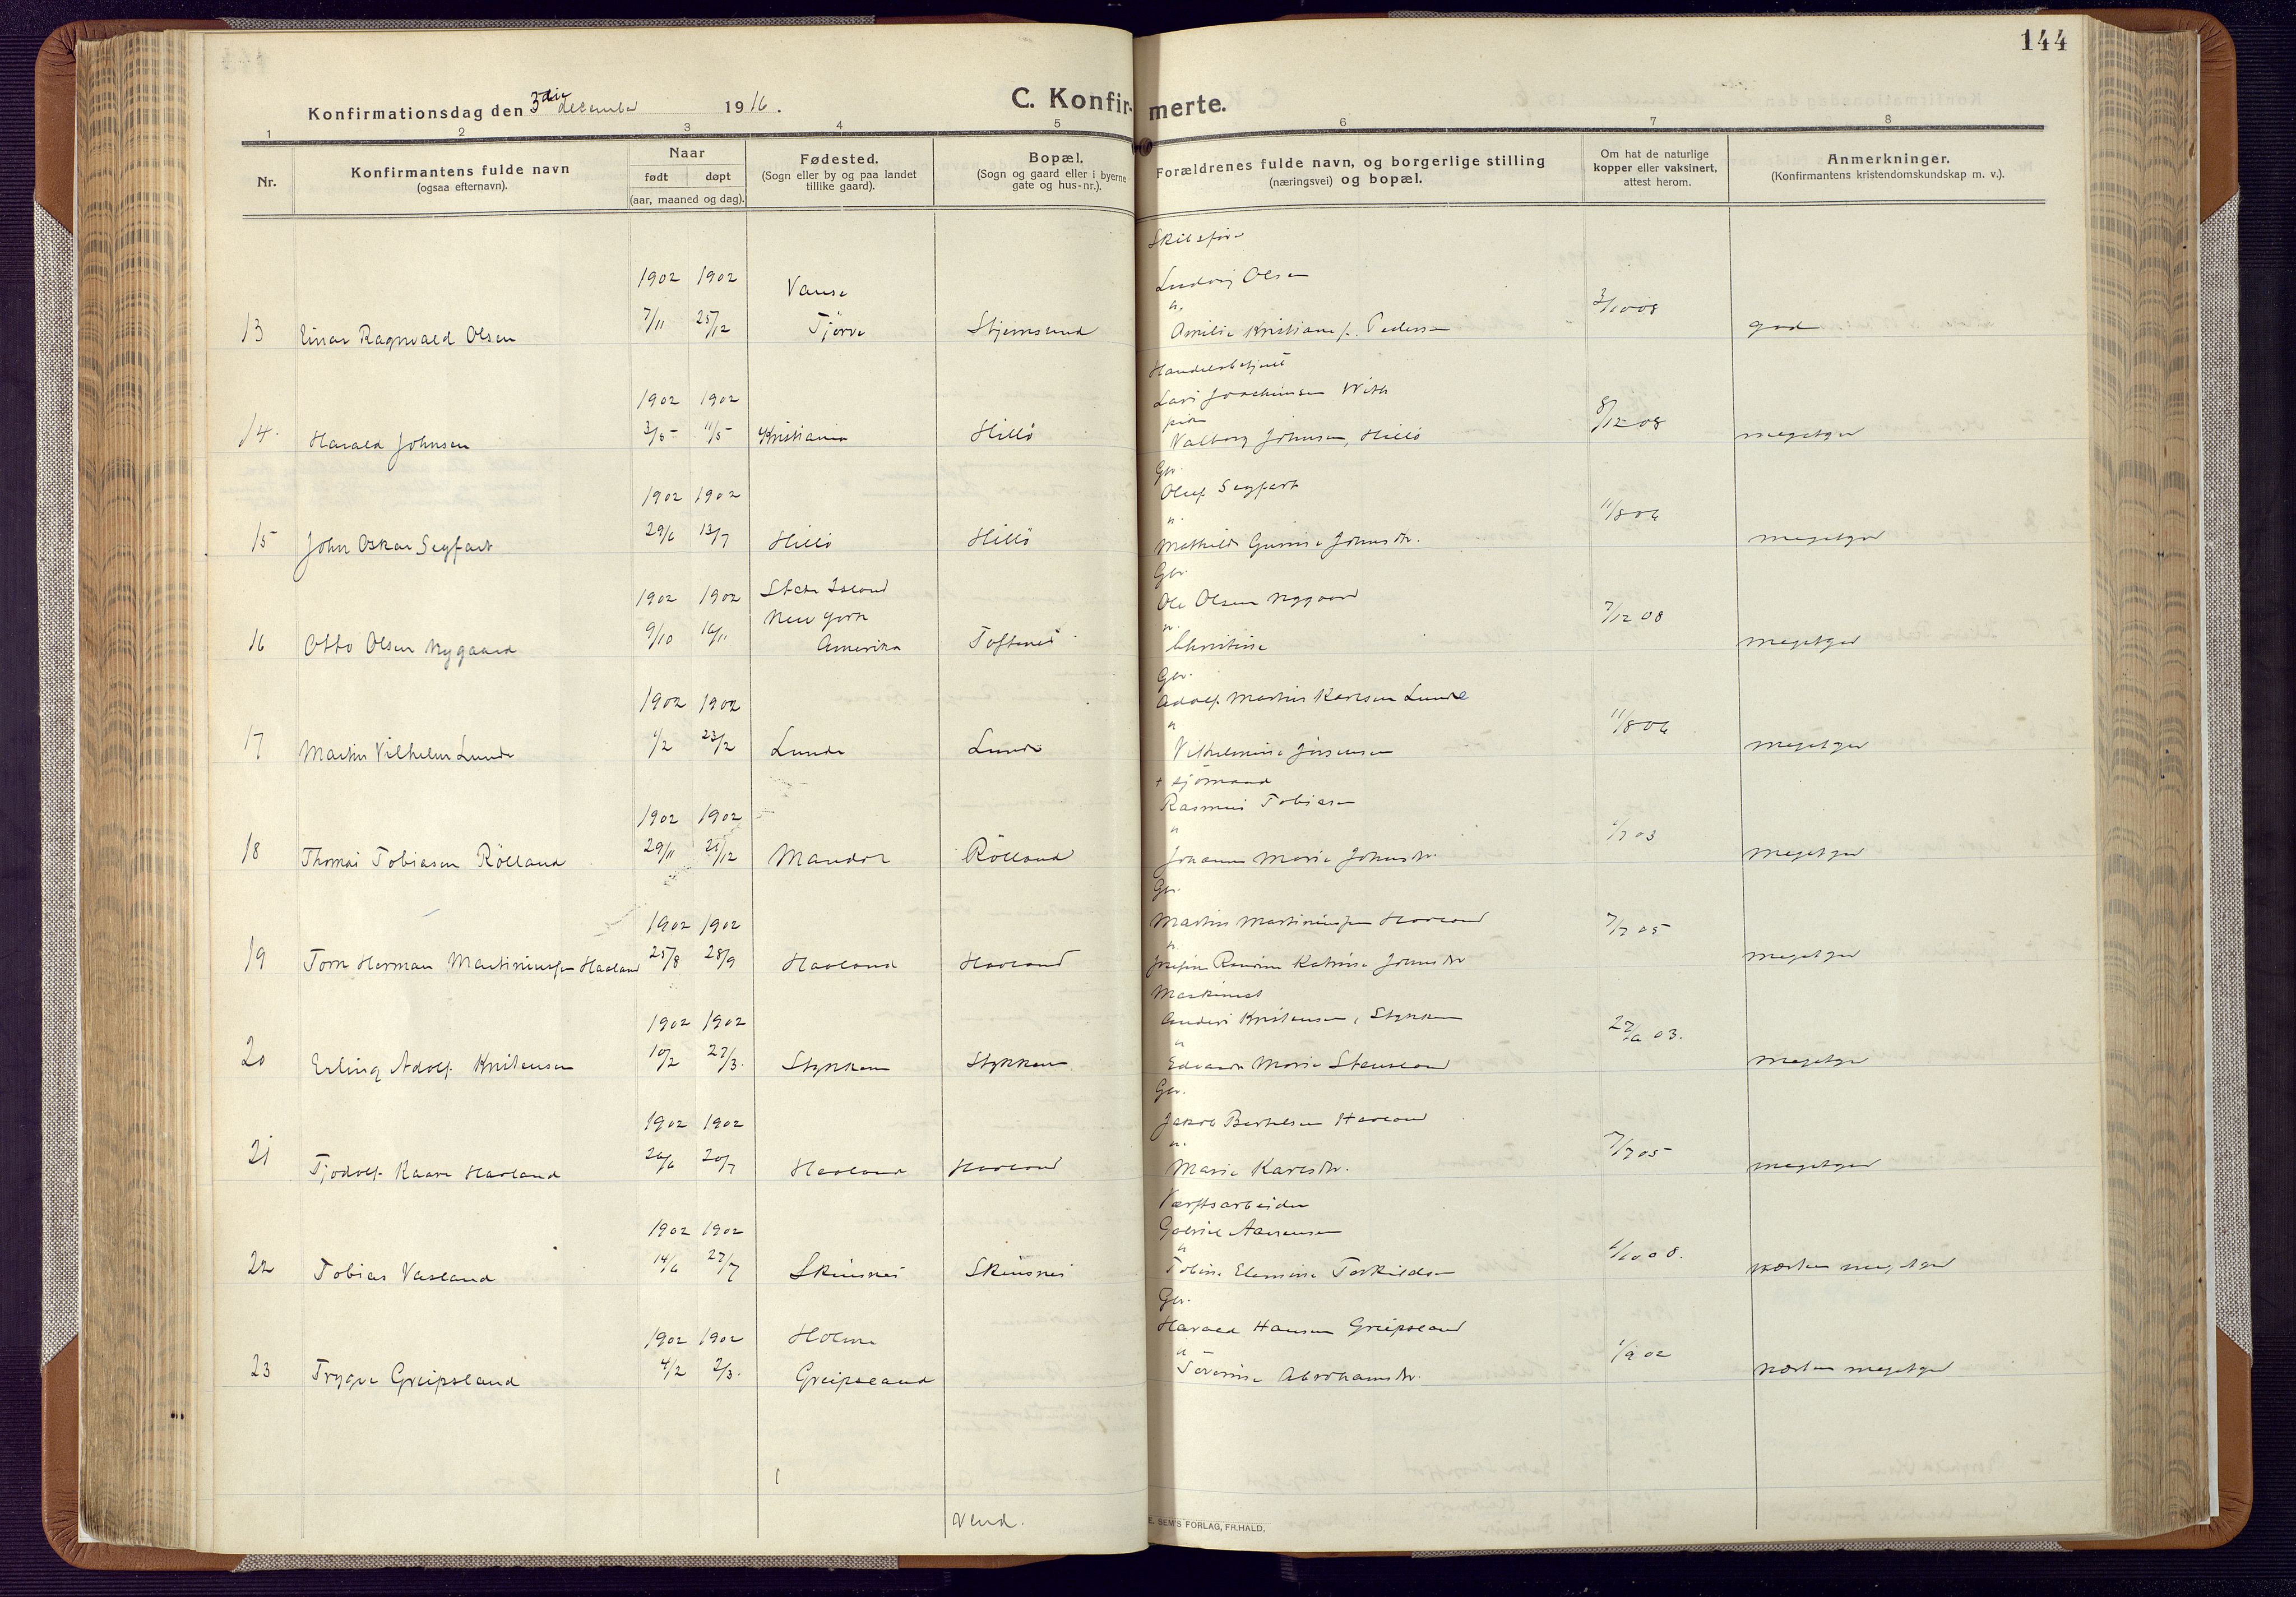 144
Konfirmationsdag den 3die december 1916.
C. Konfirmerte.
1 2 3 4 5 6 7 8
Nr.
Konfirmantens fulde navn
(ogsaa efternavn).
Naar
født døpt
(aar, maaned og dag).
Fødested.
(Sogn eller by og paa landet
tillike gaard).
Bopæl.
(Sogn og gaard eller i byerne
gate og hus-nr.).
Forældrenes fulde navn, og borgerlige stilling
(næringsvei) og bopæl.
Om hat de naturlige
kopper eller vaksinert,
attest herom.
Anmerkninger.
(Konfirmantens kristendomskundskap m. v.).
Skibsfører
1902 1902 Vanse Ludvig Olsen
u.
13 Einar Ragnvald Olsen 7/11 25/12 Tjörve Stjernsund Amilie Kristiane f. Pedersen 3/10 08 god
Handelsbetjent
1902 1902 Joachimsen With
pike
14. Harald Johnsen 3/5 11/5 Kristiania Hillö Valborg Johnsen, Hillö 8/12 08 megetgod
Gbr.
1902 1902 Oluf Segfart
u.
15 John Oskar Segfart 29/6 13/7 Hillö Hillö Mathilde Johnsdtr. 11/8 06 megetgod
Gbr.
1902 1902 Staten Island Ole Olsen Nygaard
New York u.
16 Otto Olsen Nygaard 9/10 16/11 Amerika Toftenes Christine 7/12 08 megetgod
Gbr.
1902 1902 Adolf Martin Karlsen Lunde
u
17 Martin Vilhelm Lunde 1/2 23/2 Lunde Lunde Vilhelmine Jörgensen 11/8 06 megetgod
+ sjömand
1902 1902 Rasmus Tobiasen
u
18 Thomas Tobiasen Rölland 29/11 Mandal Rölland Johanne Marie Johnsdtr. /7 03 megetgod
Gbr.
1902 1902 Martin Martiniussen Haaland
u.
19 Tom Herman Martiniussen Haaland 25/8 28/9 Haaland Haaland Katrine Johnsdtr 7/7 05 megetgod
Maskinist
1902 1902 Anders Kristensen, Stykkene
u
20 Erling Adolf Kristensen 10/2 27/3. Stykkene Stykkene Marie Stensland 27/6 03. megetgod
Gbr.
1902 1902 Jakob Bertelsen Haaland
u.
21 Tjodolf Kaare Haaland 26/6 20/7 Haaland Haaland Marie Karlsdtr. 7/7 05 megetgod
Værftsarbeider
1902 1902 Gabriel Aanensen
u
22 Tobias Vasland 14/6 27/7 Skinsnes Skinsnes Tobine Elamine Torkildsen /10 08. næsten megetgod
Gbr.
1902 1902 Holme Harald Hansen Greipsland
u
23 Trygve Greipsland 4/2 2/3. Greipsland Severine Abrahamsdtr. 1/9 02 næsten megetgod
Vend.
E. SEM'S FORLAG, FR.HALD.